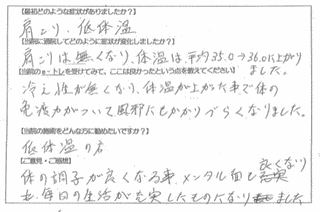 【最初どのような症状がありましたか?】
肩こり、低体温
【当院に通院してどのように症状が変化しましたか?】
肩こりは無くなり、体温は平均35.0→36.0に上がり
ました。
【当院のe-トレを受けてみて、ここは良かったという点を教えてください】
冷え性が無くなり、体温が上がった事で体の
免疫力がついて風邪にもかかりづらくなりました。
【当院の施術をどんな方に勧めたいですか?】
低体温の方
【ご意見・ご感想】
体の調子が良くなる事、メンタル面も良くなり
毎日の生活が充実したものになりました